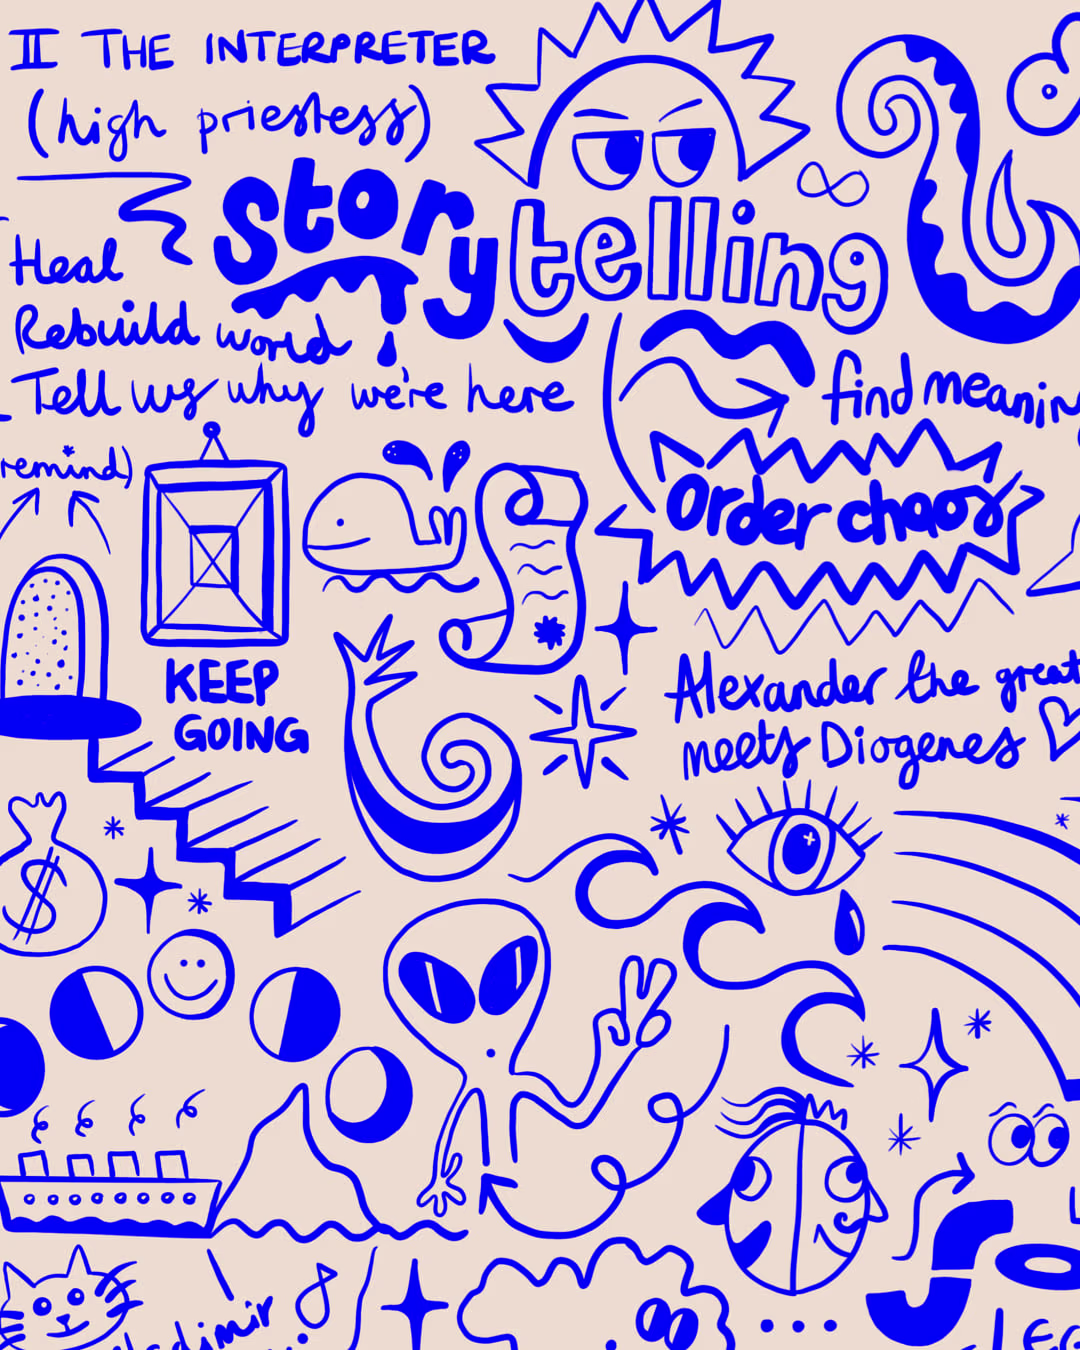 II THE INTERPRETER
(high priestess)
story
telling
Heal
Rebuild world
Tell us why we're here
remind)
find meanin
Order chaos
KEEP
GOING
Alexander the great
meets Diogenes
$